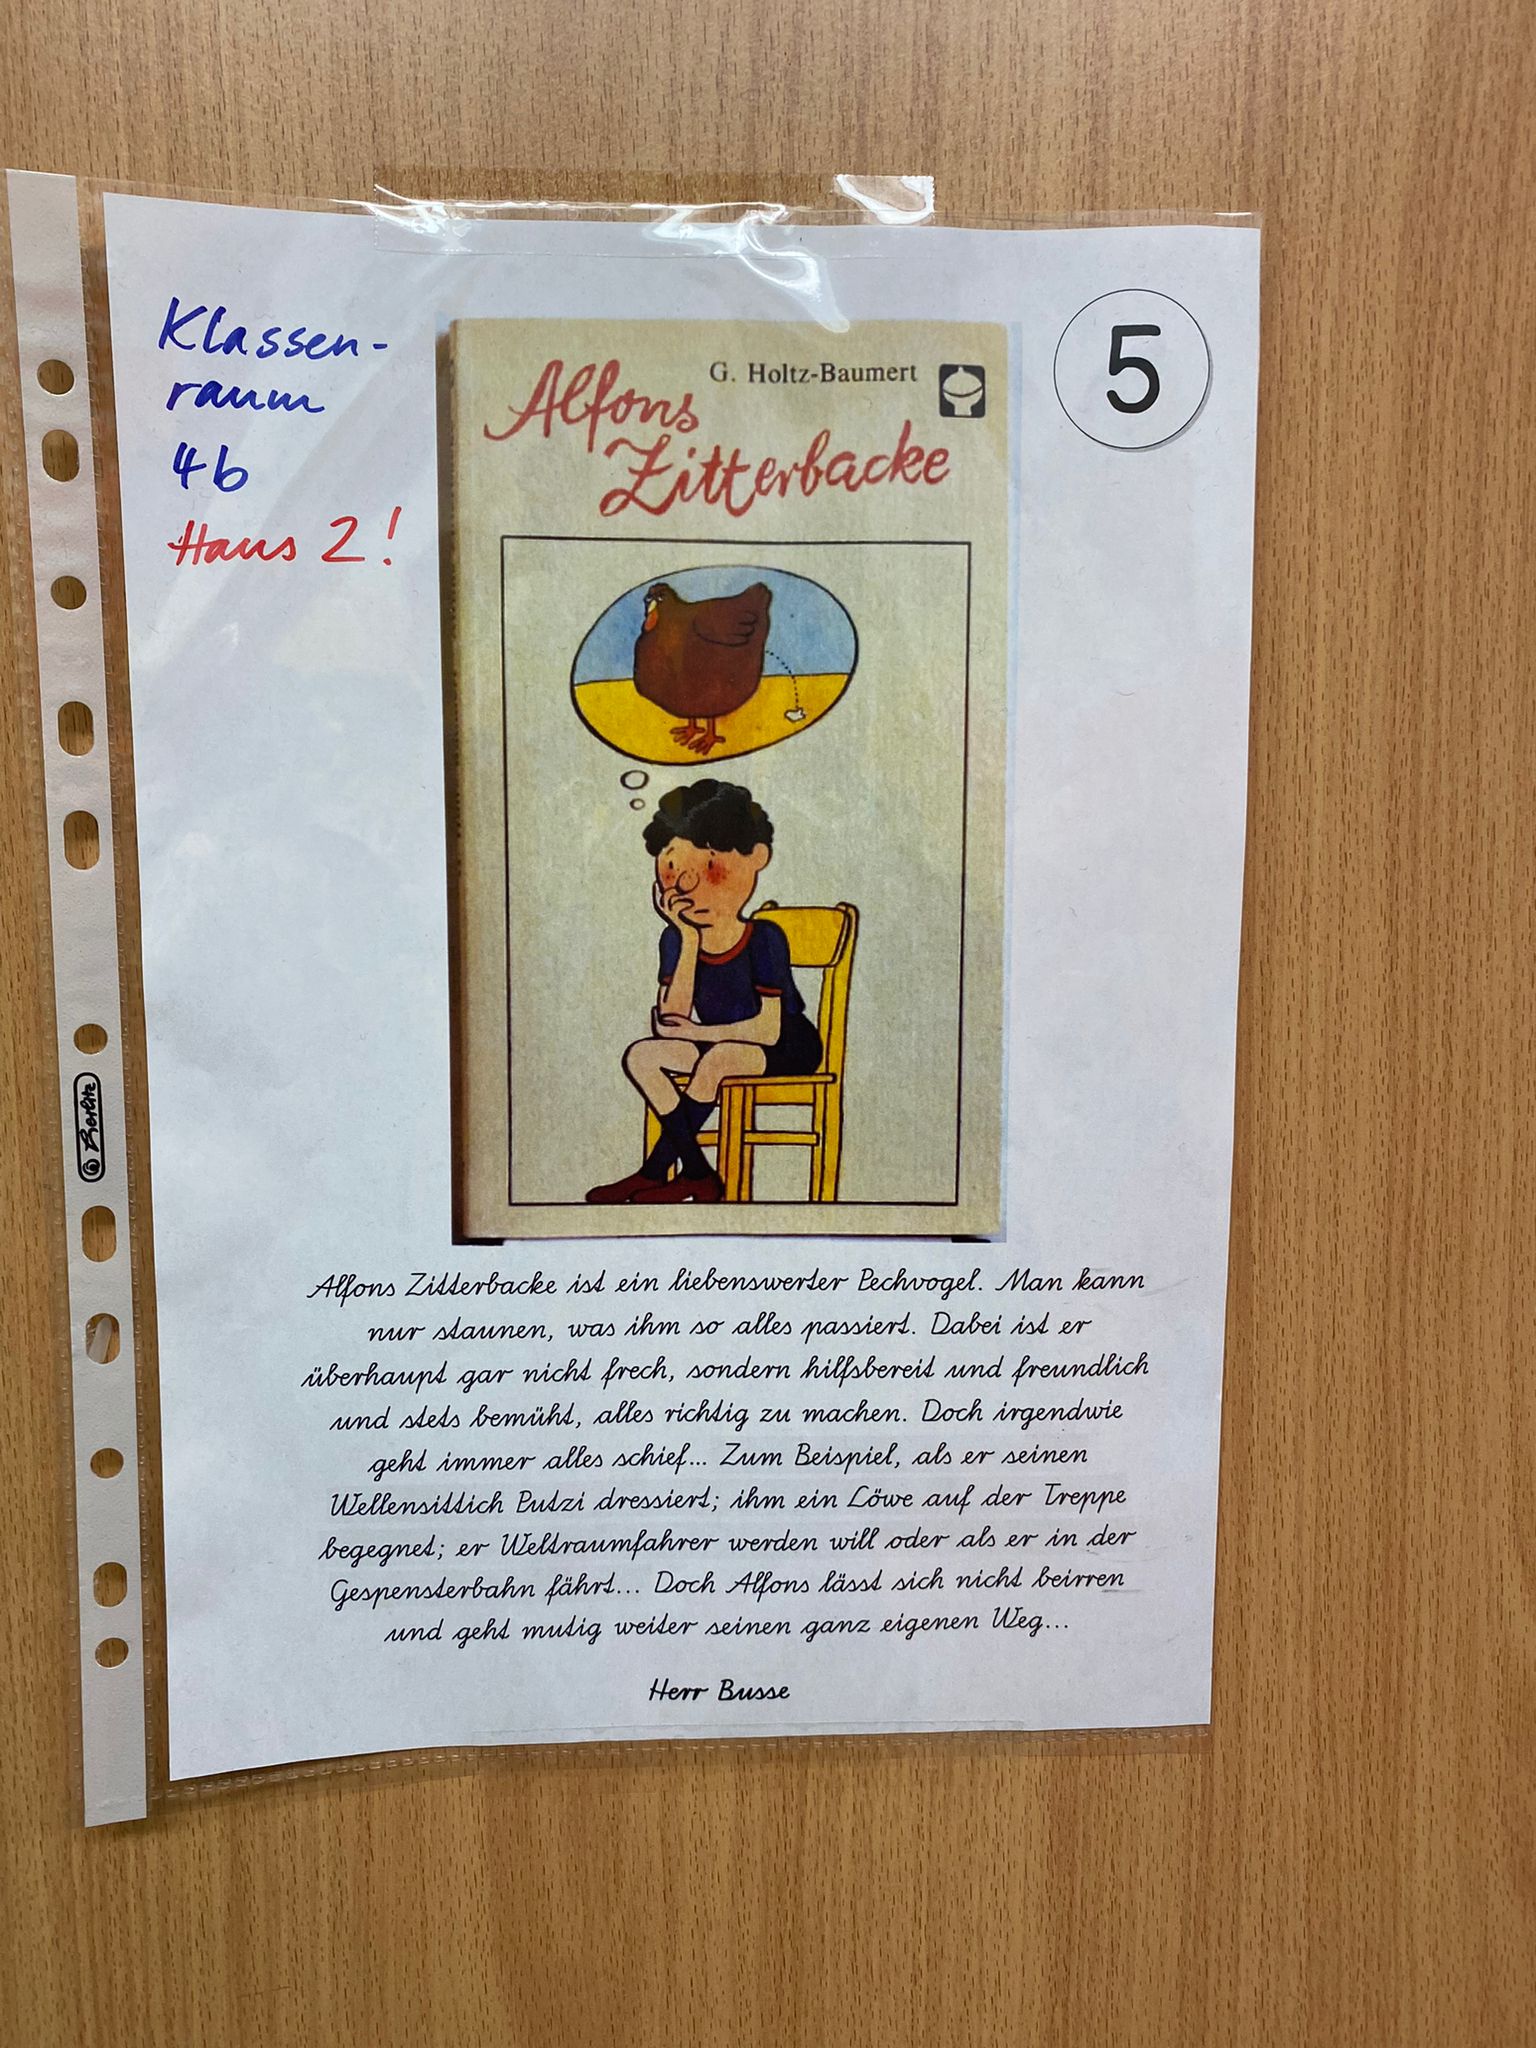 Klassen-
raum
4b
Haus 2!
5
G. Holtz-Baumert
Alfons
Zitterbacke
Alfons Zitterbacke ist ein liebenswerter Pechvogel. Man kann
nur staunen, was ihm so alles passiert. Dabei ist er
überhaupt gar nicht frech, sondern hilfsbereit und freundlich
und stets bemüht, alles richtig zu machen. Doch irgendwie
geht immer alles schief... Zum Beispiel, als er seinen
Wellensittich Putzi dressiert; ihm ein Löwe auf der Treppe
begegnet; er Weltraumfahrer werden will oder als er in der
Gespensterbahn fährt... Doch Alfons lässt sich nicht beirren
und geht mutig weiter seinen ganz eigenen Weg...
Herr Busse
Berlitz